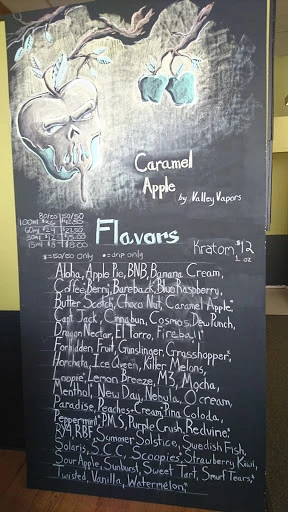 Caramel
Apple
by Valley Vapors
80/20 50/50
Flavors
Kratom $12
1 oz
*=50/50 only *=drip only
Aloha, Apple Pie, BNB, Banana Cream,
Coffee, Berry, Bareback, Blue Raspberry,
Butter Scotch, Choco Nut, Caramel Apple*
Capt. Jack, Cinnabun, Cosmos, Dew Punch,
Dragon Nectar, El Torro, Fireball*
Forbidden Fruit, Gunslinger, Grasshopper*,
Horchata, Ice Queen, Killer Melons,
Lemon Breeze, M3, Mocha,
Menthol, New Day, Nebula, O cream
Paradise, Peaches+Cream, Pina Colada,
Peppermint*, P.M.S, Purple Crush, Redvine*
RY4, RBF, Summer Solstice, Swedish Fish,
Solaris, S.C.C, Scoopies*, Strawberry Kiwi,
Sour Apple, Sunburst, Sweet Tart, Smurf Tears*,
Twisted, Vanilla, Watermelon*